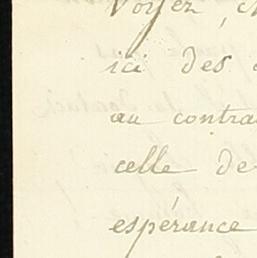 Voyez
ici des
au contra
celle de
espérance